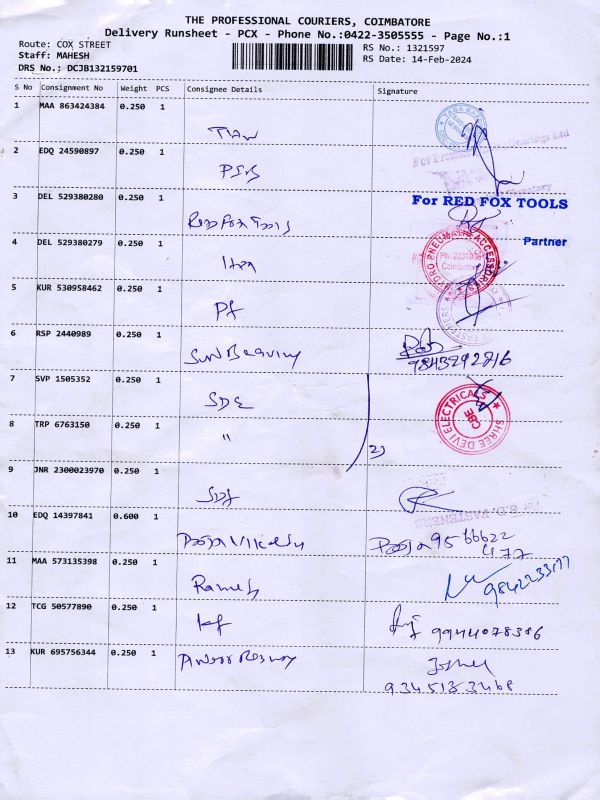 THE PROFESSIONAL COURIERS, COIMBATORE
Delivery Runsheet - PCX - Phone No.:0422-3505555 - Page No.:1
Route: COX STREET
Staff: MAHESH
DRS No.: DCJB132159701
RS No.: 1321597
RS Date: 14-Feb-2024
S No Consignment No Weight PCS Consignee Details Signature
1 MAA 863424384 0.250 1
2 EDQ 24590897 0.250 1
PSB
3 DEL 529380280 0.250 1
Red Fox Tools
For RED FOX TOOLS
Partner
4 DEL 529380279 0.250 1
HYDRO PNEUMATIC ACCESSORIES
Coimbatore
5 KUR 530958462 0.250 1
6 RSP 2440989 0.250 1
Sun Bearing
9843292816
7 SVP 1505352 0.250 1
SDE
SHREE DEVI ELECTRICALS
CBE
8 TRP 6763150 0.250 1
"
2)
9 JNR 2300023970 0.250 1
SDF
10 EDQ 14397841 0.600 1
Pooja 9566622
477
11 MAA 573135398 0.250 1
Ramesh
12 TCG 50577890 0.250 1
9944078386
13 KUR 695756344 0.250 1
9345153468